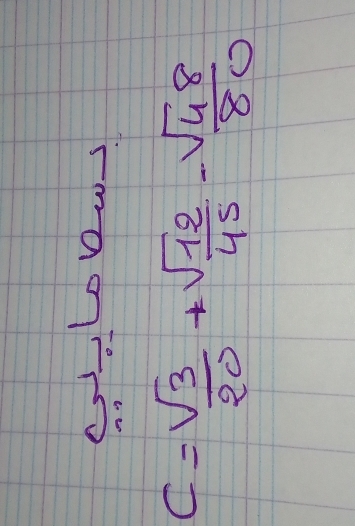 بسط ما يلي:
C = √3/20 + √12/45 - √48/80